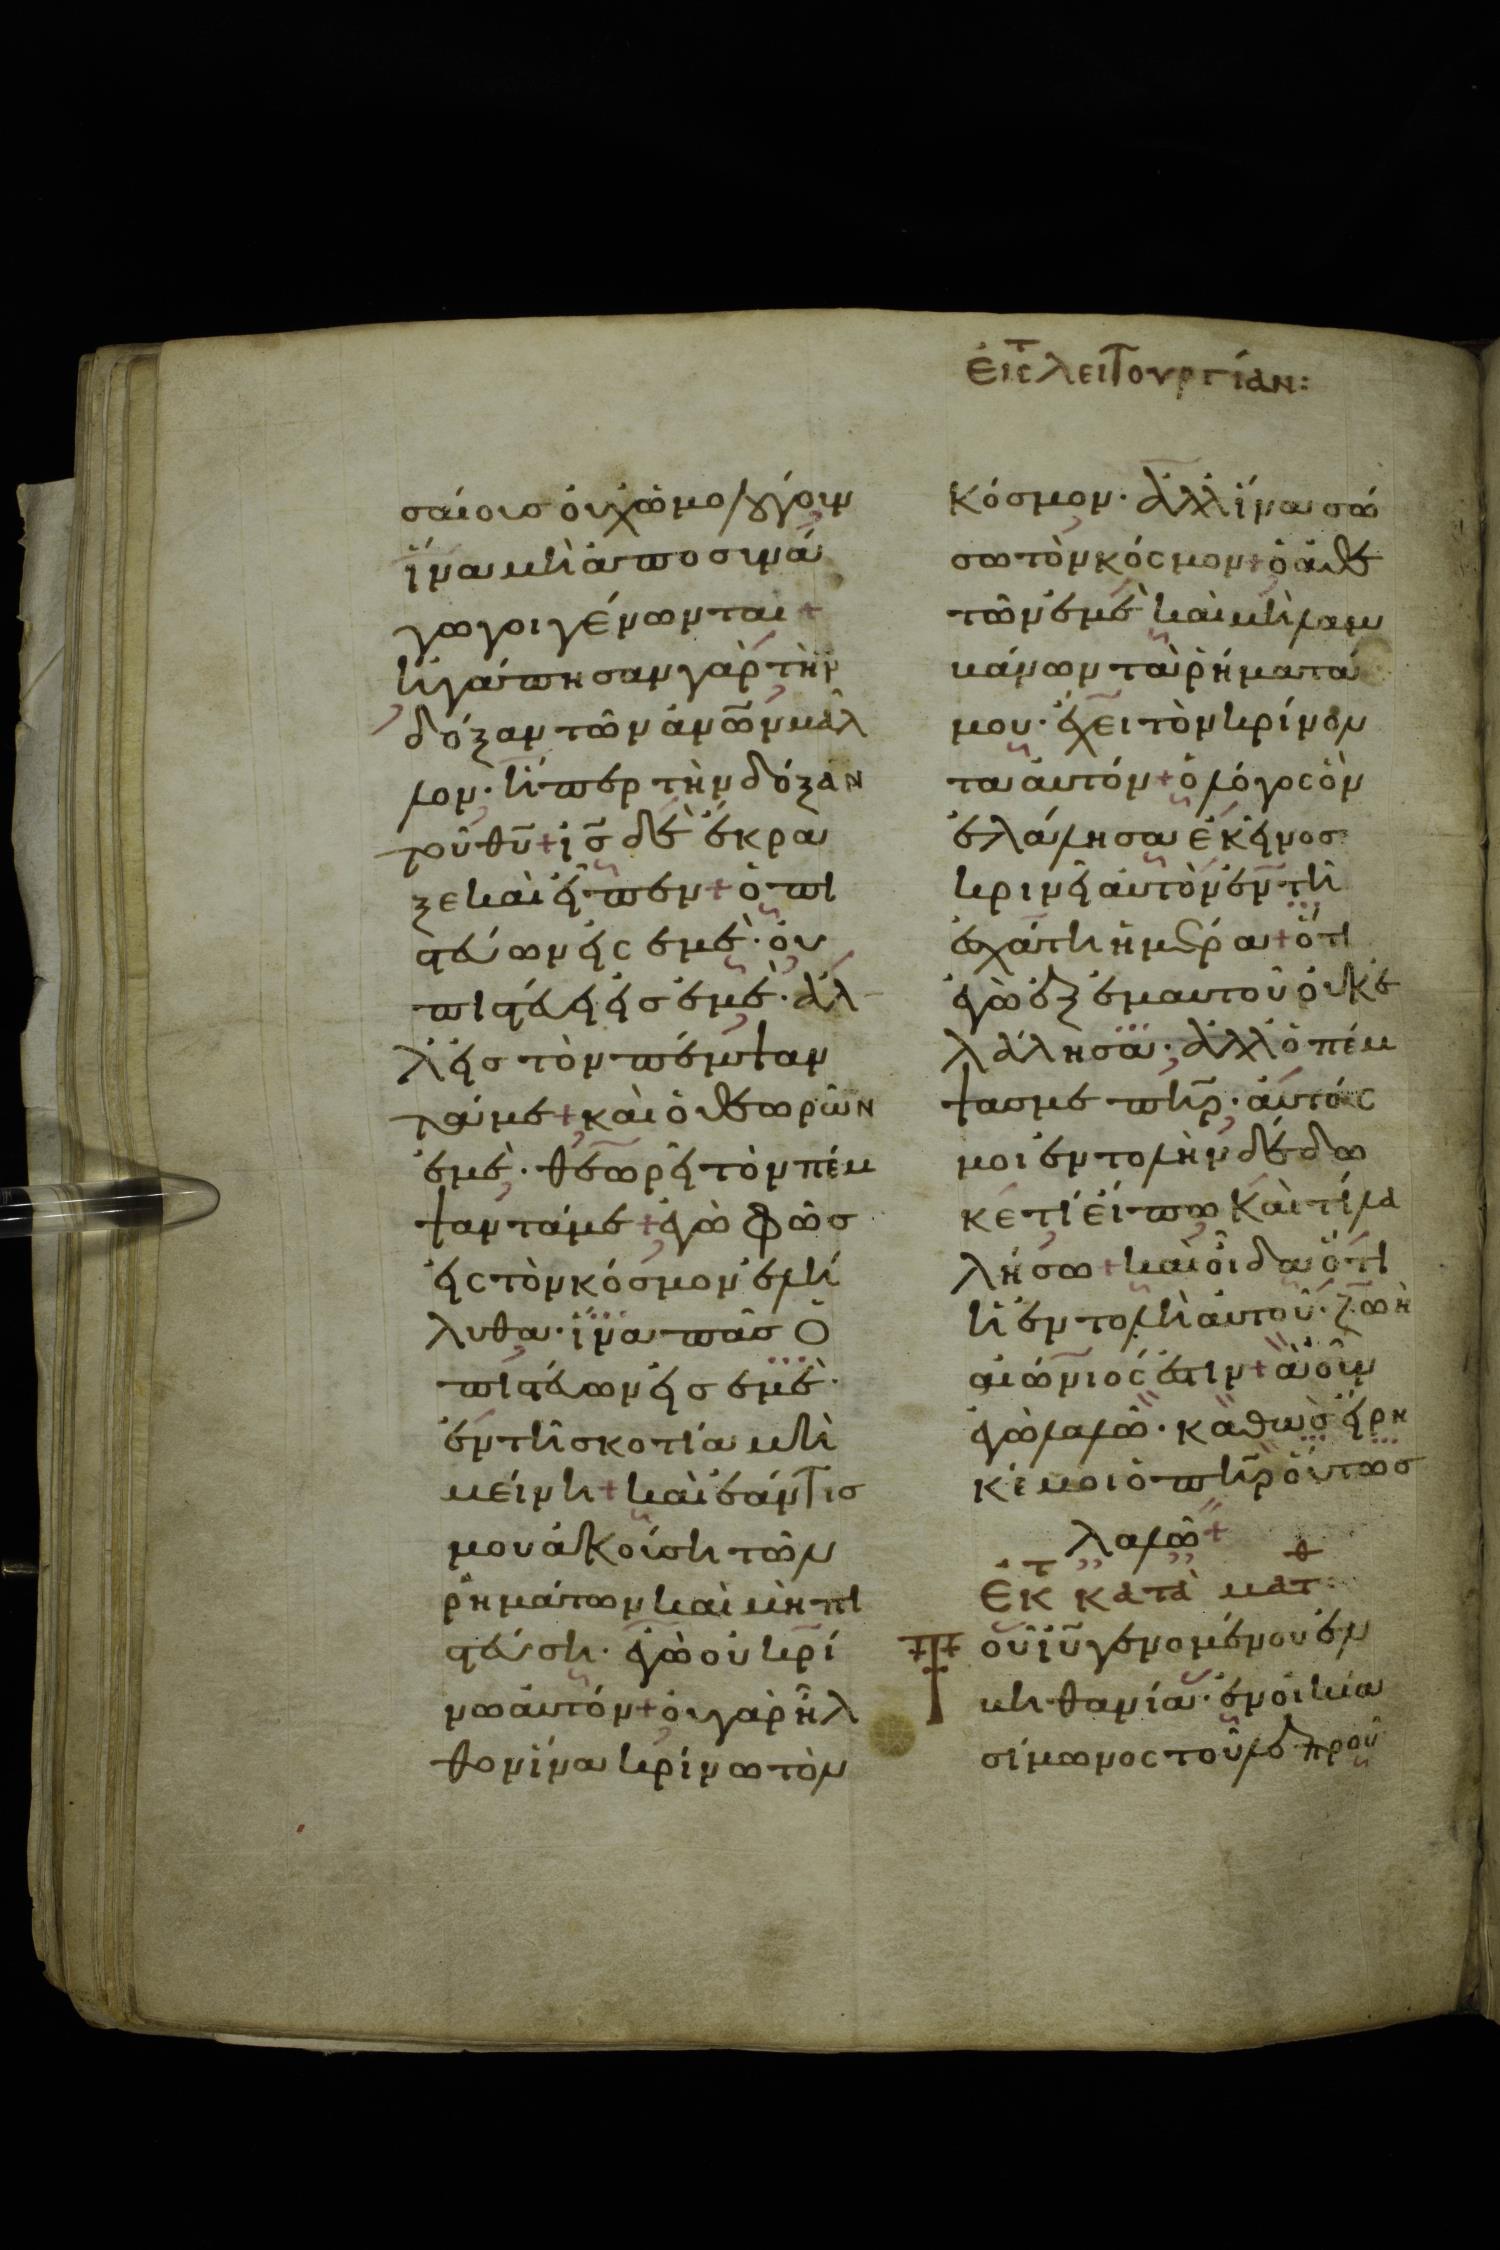 σαίοισ ὀυχ ὡμολόγουν
ἵνα μὴ ἀποσυνά
γωγοι γένωνται +
ἠγάπησαν γὰρ τὴν
δόξαν τῶν ἀνῶν μᾶλ
λον· ἤπερ τὴν δόξαν
τοῦ θῦ + ἰς δὲ ἔκρα
ξε καὶ εἶπεν + ὁ πι
στεύων εἰς ἐμὲ· ὀυ
πιστεύει εἰσ ἐμὲ· ἀλ
λ' εἰσ τὸν πέμψαν
τά με + καὶ ὁ θεωρῶν
ἐμὲ· θεωρεῖ τὸν πέμ
ψαντά με + ἐγὼ φῶσ
εἰς τὸν κόσμον ἐλή
λυθα· ἵνα πᾶσ ὁ
πιστεύων εἰσ ἐμὲ·
ἐν τῆ σκοτία μὴ
μείνη + καὶ ἐάν τισ
μου ἀκούση τῶν
ῥημάτων καὶ μὴ πι
στεύση· ἐγὼ οὐ κρί
νω ἀυτόν + ὀυ γὰρ ἦλ
θον ἵνα κρίνω τὸν
ἐις τ λειτουργίαν:
κόσμον· ἀλλ' ἵνα σώ
σω τὸν κόσμον + ὁ ἀθε
τῶν ἐμὲ καὶ μὴ λαμ
βάνων τὰ ῥήματά
μου· ἔχει τὸν κρίνον
τα ἀυτόν + ὁ λόγος ὃν
ἐλάλησα ἐκεῖνοσ
κρινεῖ ἀυτὸν ἐν τῆ
ἐσχάτη ἡμέρα + ὅτι
ἐγὼ ἐξ ἐμαυτοῦ ὀυκ ἐ
λάλησα· ἀλλ' ὁ πέμ
ψασ με πηρ· ἀυτός
μοι ἐντολὴν δέδω
κε τί ἔιπω καὶ τί λα
λήσω + καὶ οἶδα ὅτι
ἡ ἐντολὴ ἀυτοῦ· ζωὴ
αἰώνιός ἐστιν + ἃ οὖν
ἐγὼ λαλῶ· καθὼσ εἴρη
κέ μοι ὁ πηρ ὅυτωσ
λαλῶ +
ἐκ τ κατὰ ματθ:
Τοῦ ἰῦ γενομένου ἐν
βηθανία· ἐν οἰκία
σίμωνος τοῦ λεπροῦ